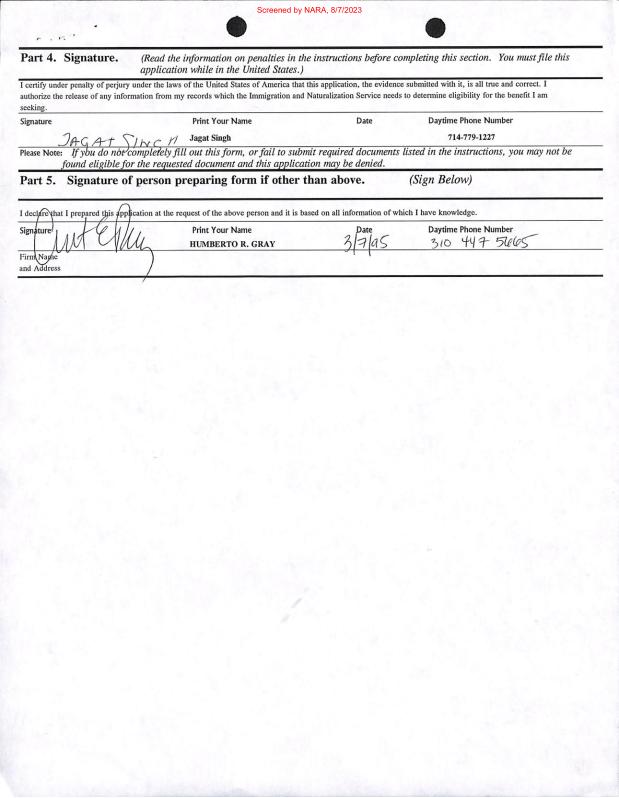 Screened by NARA, 8/7/2023
Part 4. Signature. (Read the information on penalties in the instructions before completing this section. You must file this
application while in the United States.)
I certify under penalty of perjury under the laws of the United States of America that this application, the evidence submitted with it, is all true and correct. I
authorize the release of any information from my records which the Immigration and Naturalization Service needs to determine eligibility for the benefit I am
seeking.
Signature Print Your Name Date Daytime Phone Number
JAGAT SINGH Jagat Singh 714-779-1227
Please Note: If you do not completely fill out this form, or fail to submit required documents listed in the instructions, you may not be
found eligible for the requested document and this application may be denied.
Part 5. Signature of person preparing form if other than above. (Sign Below)
I declare that I prepared this application at the request of the above person and it is based on all information of which I have knowledge.
Signature Print Your Name Date Daytime Phone Number
HUMBERTO R. GRAY 3/7/95 310 447 5665
Firm Name
and Address